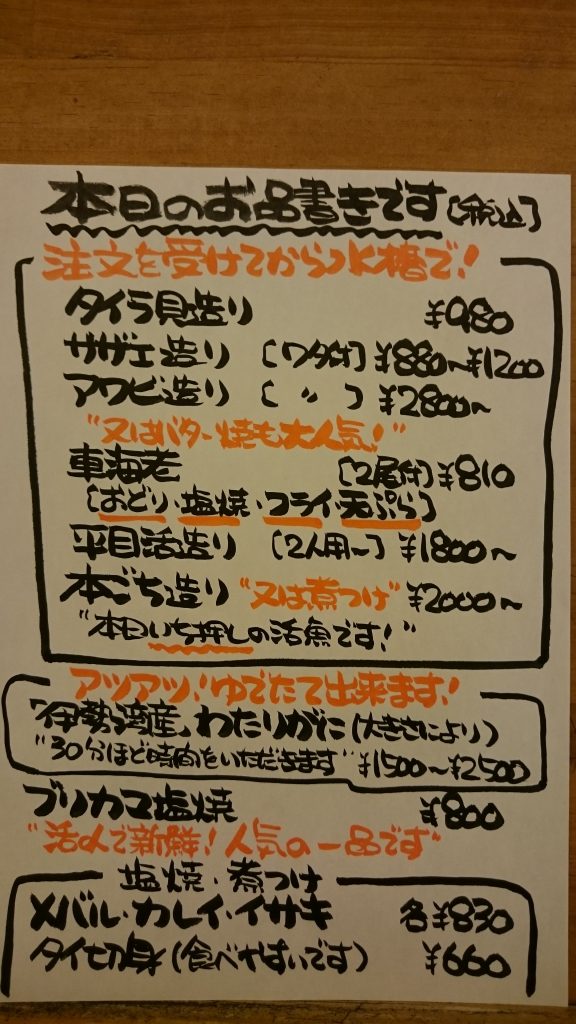 本日のお品書きです[税込]
注文を受けてから水槽で!
タイラ貝造り ¥980
サザエ造り [ワタ付] ¥880~¥1200
アワビ造り [〃] ¥2800~
"又はバター焼も大人気!"
車海老 [2尾付] ¥810
[おどり・塩焼・フライ・天ぷら]
平目活造り [2人用~] ¥1800~
本ごち造り "又は煮つけ" ¥2000~
"本日いち押しの活魚です!"
アツアツ!ゆでたて出来ます!
「伊勢湾産」わたりがに(大きさにより)
"30分ほど時間をいただきます" ¥1500~¥2500
ブリカマ塩焼 ¥800
"活〆で新鮮!人気の一品です"
塩焼・煮つけ
メバル・カレイ・イサキ 各¥830
タイ切身(食べやすいです) ¥660